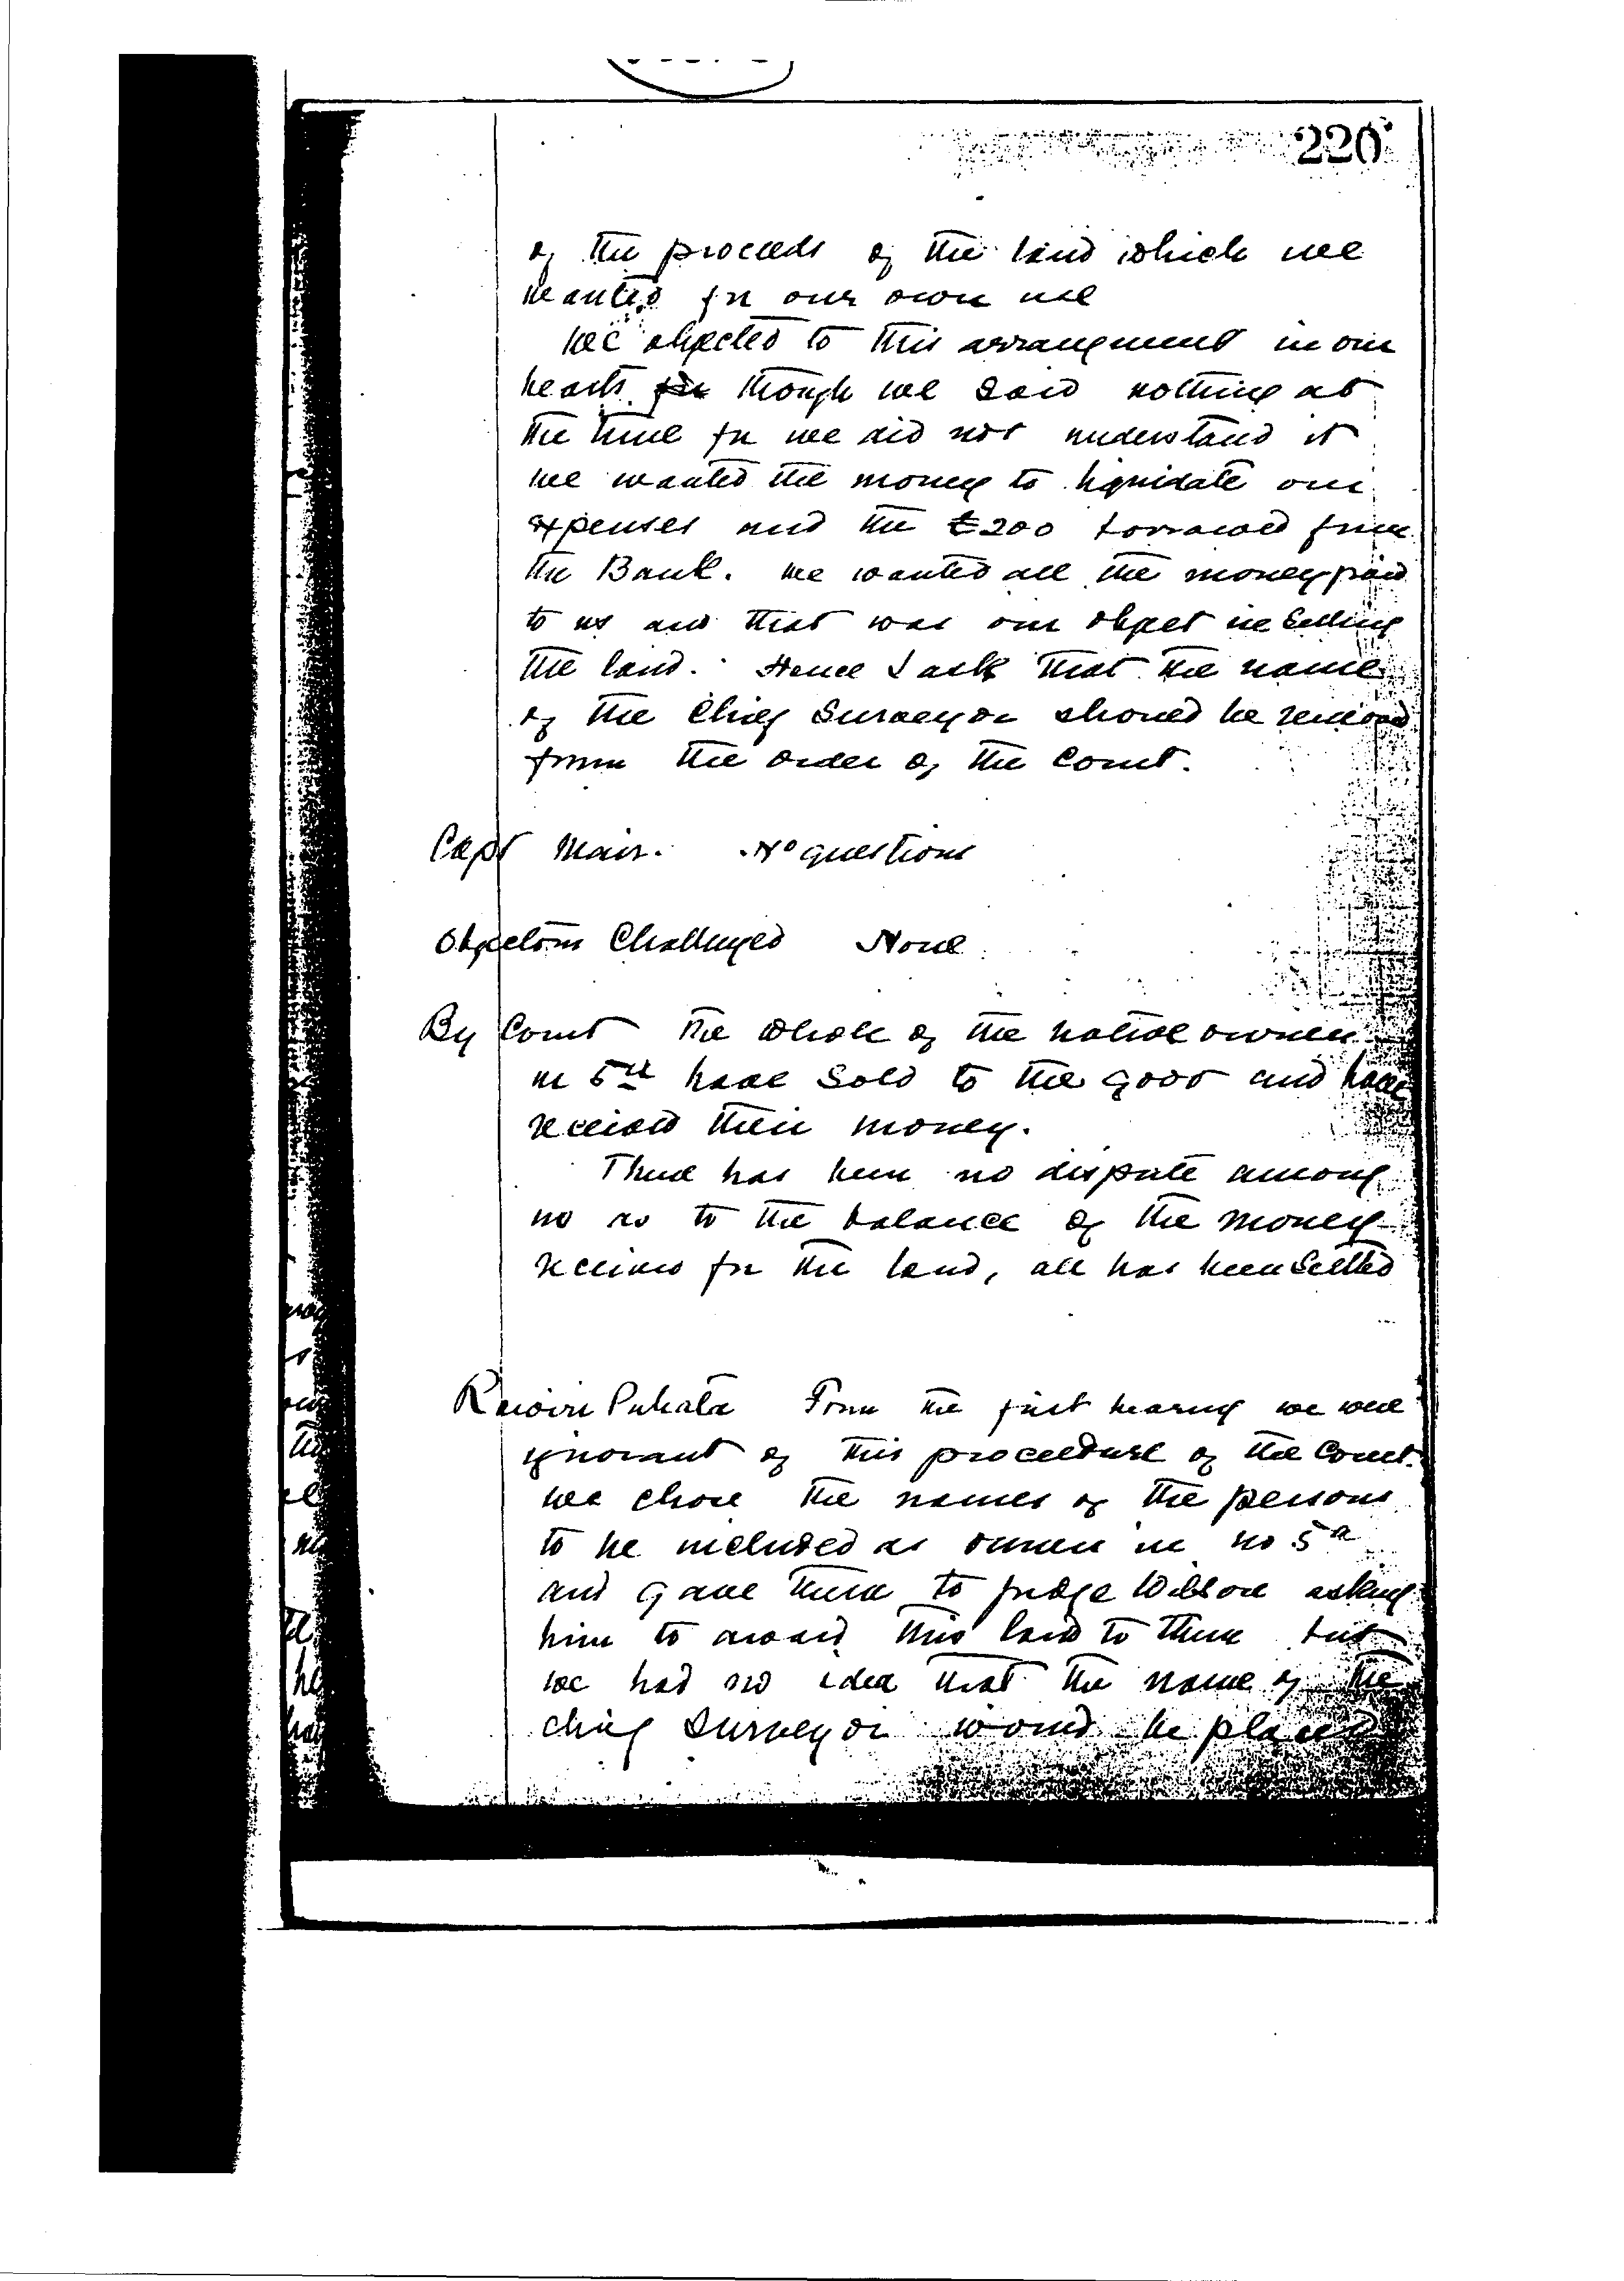 220
of the proceeds of the land which we
wanted for our own use
We objected to this arrangement in our
hearts for though we said nothing at
the time for we did not understand it
we wanted the money to liquidate our
expenses and the £200 borrowed from
the Bank. We wanted all the money paid
to us and that was our object in selling
the land. Hence I ask that the name
of the Chief Surveyor should be removed
from the order of the Court.
Capt Mair. No questions
Objectors Challenged None
By Court The whole of the native owners
in 5a have sold to the Govt and have
received their money.
There has been no dispute among
us as to the balance of the money
received for the land, all has been settled
Rawiri Puhata From the first hearing we were
ignorant of this proceedure of the Court.
We chose the names of the persons
to be included as owners in No 5a
and gave them to Judge Wilson asking
him to award this land to them but
we had no idea that the name of the
Chief Surveyor would be placed